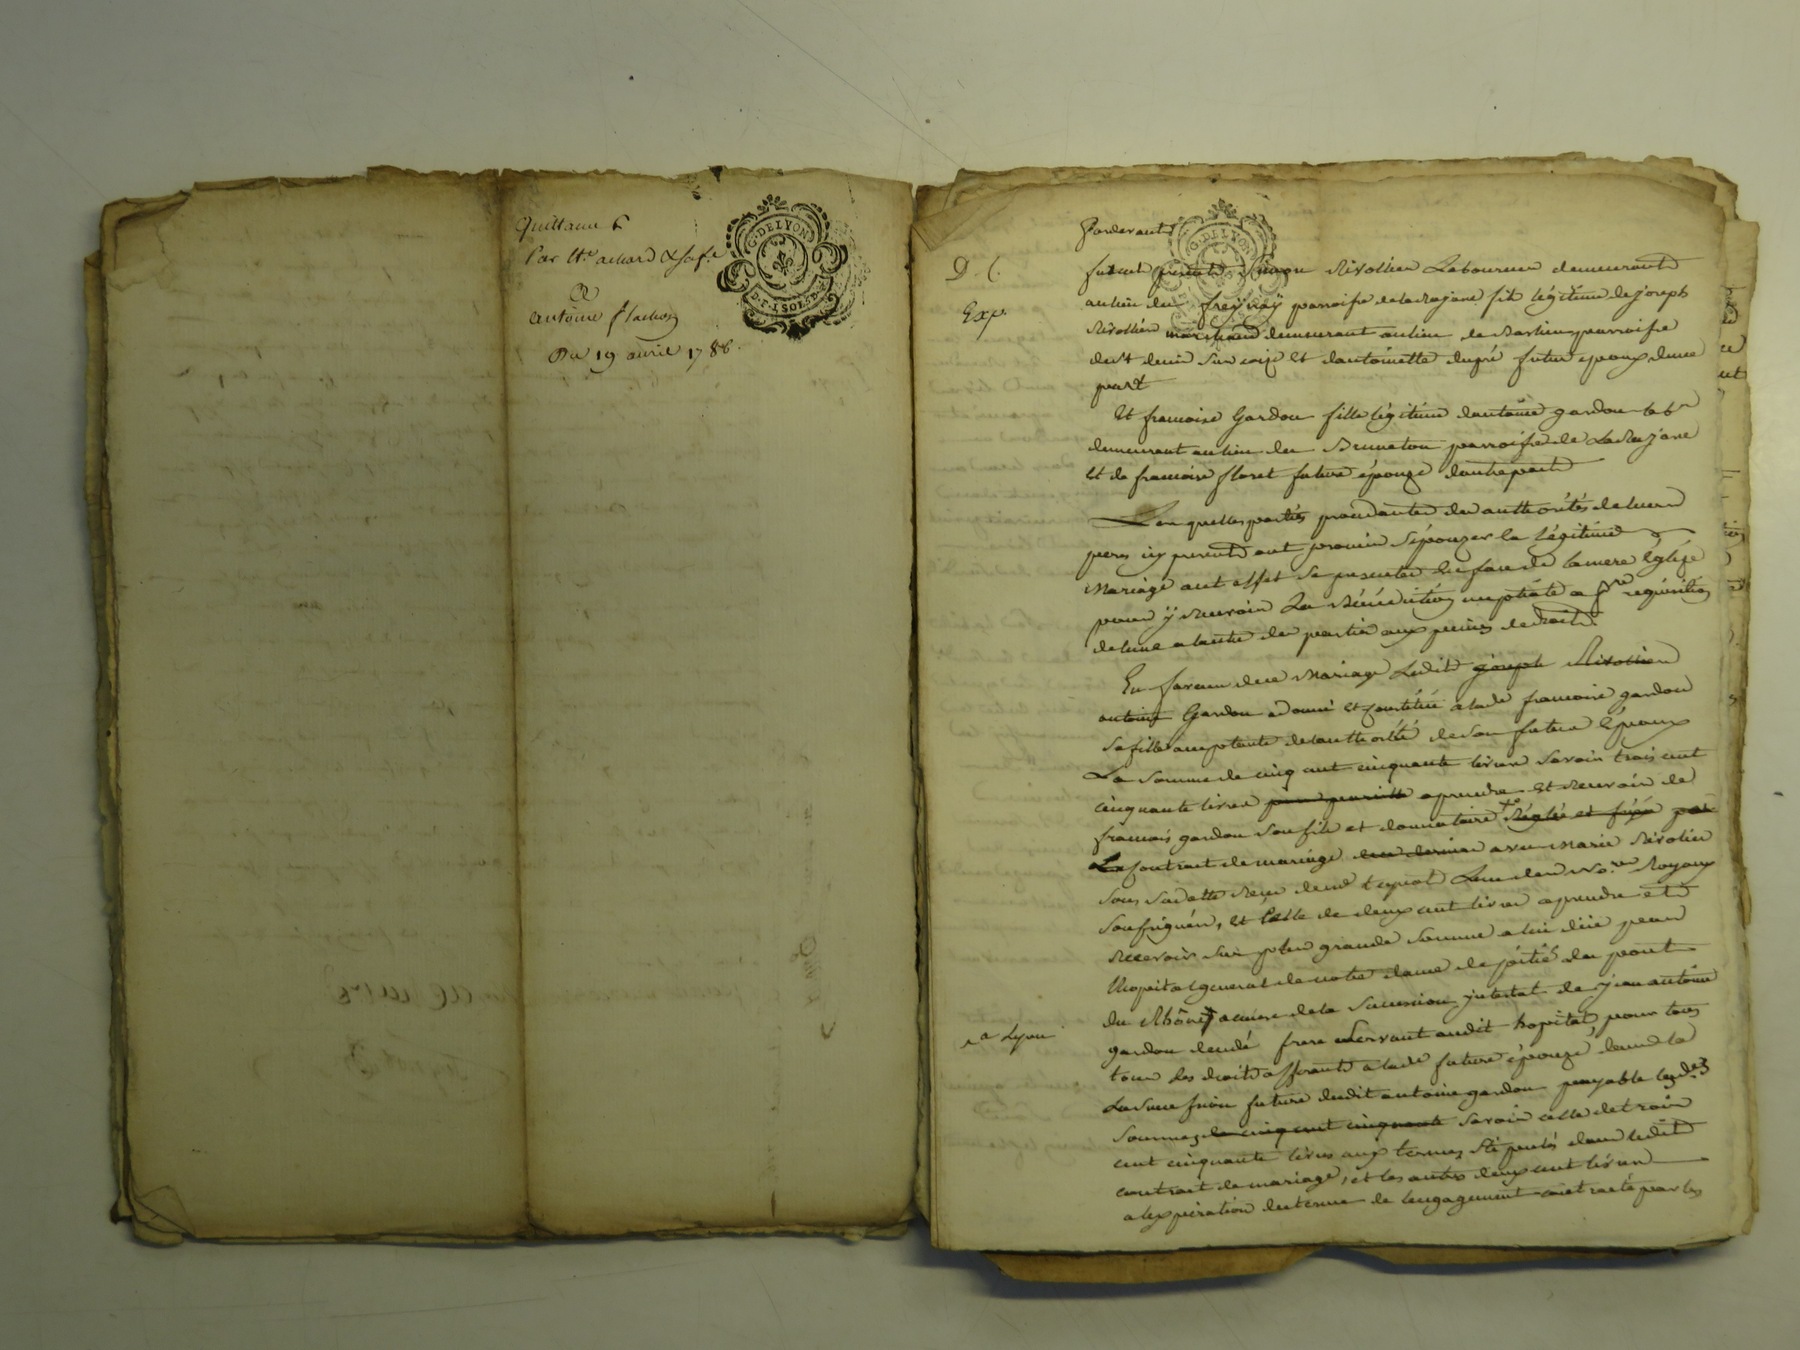 Quittance
Par Me achard & sa fe
a
antoine flachon
Du 19 avril 1788.
G. DE LYON
D.E. 1 SOL 8 D.
Pardevant
D. C.
Exp.
furent presents Simon Rivollier Laboureur demeurant
au lieu du freynay parroisse de la Rajasse fils légitime de joseph
Rivollier marchand demeurant au lieu de parroisse
de st denis sur coize Et d'antoinette dupré futur epoux d'une
part
Et francoise Gardon fille légitime d'antoine gardon lab.r
demeurant au lieu du Bruneton parroisse de La Rajasse
Et de francoise floret future épouze d'autre part
Lesquelles parties procedantes des authorités de leurs
peres icy presents ont promis s'épouzer en légitime
Mariage a cet effet se presenter en face de la mere Eglize
pour y recevoir La Bénédiction nuptiale a pre requisition
de l'une a l'autre des parties aux peines de droit
En faveur de ce Mariage Ledit joseph Rivollier
antoine Gardon a donné Et constitué a lade francoise gardon
sa fille acceptante de l'authorité de son futur Epoux
La somme de cinq cent cinquante livres savoir trois cent
cinquante livres a prendre et recevoir de
francois gardon son fils et donnataire réglée et fixée par
Le Contrat de mariage avec Marie Rivolier
sous sa datte Reçu de me teynot L'un des No.res Royaux
soussignés, et Celle de deux cent livres a prendre et
recevoir sur plus grande somme a lui düe par
l'hopital general de notre dame de pitié du pont
du Rhône a cause de la succession intestat de jean antoine
a Lyon
gardon decedé frere servant audit hopital pour tous
tous les droits afferants a lade future épouze dans la
succession future dudit antoine gardon payable lesd.es
sommes de cinq cent cinquante savoir celle de trois
cent cinquante livres aux termes stipulés dans ledit
contrat de mariage, et les autres deux cent livres
a l'expiration du terme de l'engagement contracté par les